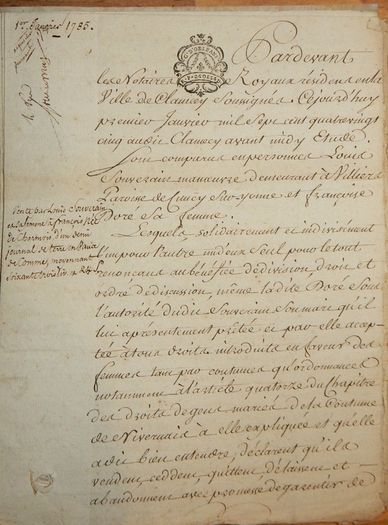 1er Janvier 1785.
Pardevant
les Notaires Royaux résidens en la
Ville de Clamecy Soussignés Cejourd'huy
premier Janvier mil Sept cent quatrevingt
cinq audit Clamecy avant midy Etude.
Sont comparus en personnes Louis
Souverain manœuvre demeurant à Villiers
Paroisse de Cuncy sur yonne et françoise
Doré Sa femme.
Lesquels solidairement et indivisément
l'un pour l'autre un d'eux Seul pour le tout
renonçans au bénéfice de division droit et
ordre de discussion, même ladite Doré Sous
l'autorité dudit Souverain Son mari qu'il
lui a présentement prêtée et par elle accep
tée à tous droits introduits en faveur des
femmes tant par coutumes qu'ordonnances
notamment à l'article quatorze du Chapitre
des droits de gens mariés de la Coutume
de Nivernais à elle expliqués et qu'elle
a dit bien entendre, déclarent qu'ils
vendent, cèdent, quittent, délaissent et
abandonnent avec promesse de garentir de
Vente par Louis Souverain
et sa femme à françois
de Chevroches d'un demi
journal de terre en
de Comme, moyennant
soixante trois liv.